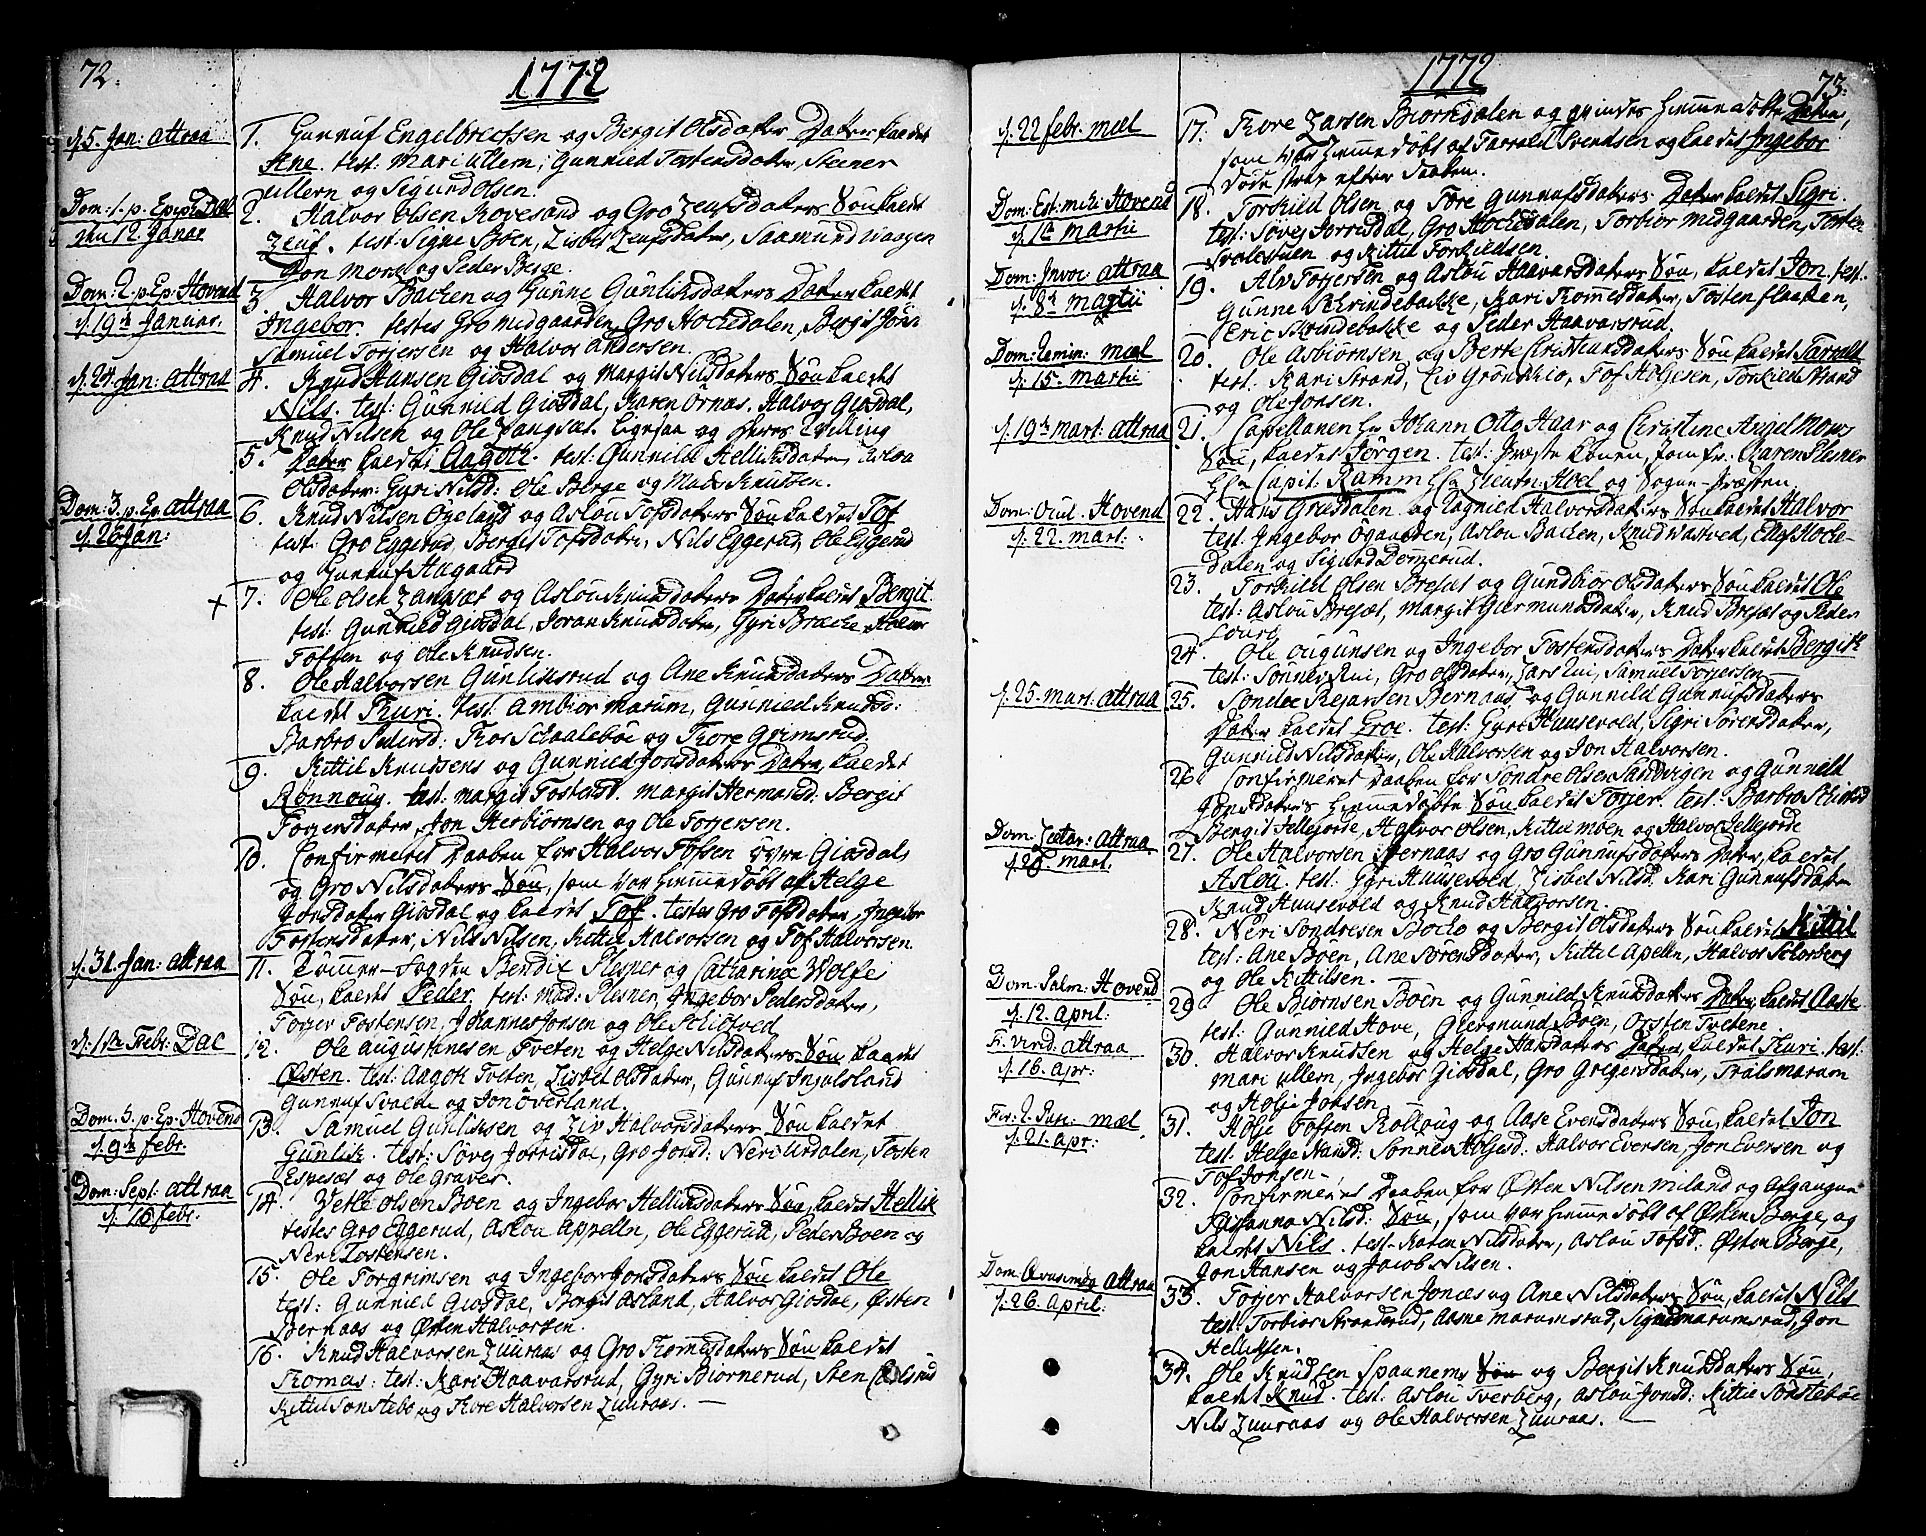 72.
1772
d. 5. Jan: Attraa
1. Gunnuf Engelbrechsen og Bergit Olsdatters Datter kaldet
Ane. test: Mari Ullern, Gunnild Tostensdatter, Steener
Ullern og Sigurd Olsen.
Dom: 1. p. Epiph: Dal
den 12. Januar
2. Halvor Olsen Kovesand og Gro Zeufsdatters Søn kaldet
Zeuf. test: Signe Boen, Lisbet Zeufsdatter, Saamund
Jon Moen og Peder Berge.
Dom: 2. p. Ep: Hovend
d. 19de Januar.
3. Halvor Backen og Gunne Gunliksdatters Datter kaldet
Ingebor. testes Gro Midgaarden, Gro Hockedalen, Bergit
Samuel Torjersen og Halvor Andersen.
d. 24. Jan: Attraa
4. Knud Hansen Giosdal og Margit Nilsdatters Søn kaldet
Nils. test: Gunnild Giosdal, Karen Ornæs. Halvor Giosdal,
Knud Nilsen og Ole Langsæt. og deres Tvilling
5. Datter kaldet Aagoth. test: Gunnild Helliksdatter, Aslou
Olsdatter: Gyri Nilsd: Ole Berge og Mads Knutsen.
Dom: 3. p. Ep. Attraa
d. 26 Jan:
6. Knud Nilsen Øgeland og Aslou Tofsdatters Søn kaldet Tof
test: Gro Eggerud, Bergit Tofsdatter, Nils Eggerud, Ole Eggerud
og Gunnuf Aagaard
+ 7. Ole Olsen Langsæt og Aslou Knudsdatters Datter kaldet Bergit.
test: Gunnild Giosdal, Joran Knudsdatter, Gyri Bracke,
Tofsen og Ole Knudsen.
8. Ole Halvorsen Gunliksrud og Ane Knudsdatters Datter
kaldet Thuri. test: Ambior Marum, Gunnild Knudsd:
Barbro Pedersd: Thor Schaaleboe og Thore Grimsrud.
9. Kittil Knutsens og Gunnild Jonsdatters Datter, kaldet
Rønnoug. test: Margit Tostensd. Margit Hermansd: Bergit
Torjersdatter, Jon Herbiornsen og Ole Torjersen.
10. Confirmeret Daaben for Halvor Tofsen Giosdals
og Gro Nilsdatters Søn, som var hiemmedøbt af Helge
Jonsdatter Giosdal og kaldet Tof. testes Gro Tofsdatter, Ingebor
Tostensdatter, Nils Nilsen, Kittil Halvorsen og Tof Halvorsen
d. 31. Jan: Attraa
11. Tømmer-Fogden Bendix Plesner og Catharina Wolfs
Søn, kaldet Peder. test: Mad: Plesner, Ingebor Pedersdatter,
Torjer Tostensen, Johannes Jonsen og Ole Schiotved
d. 1ste Febr: Dal
12. Ole Augustinesen Tveten og Helge Nilsdatters Søn kaldet
Østen. test: Aagoth Tveten, Lisbet Olsdatter, Gunnuf Ingulsland
Gunnuf Svalde og Jon Overland.
Dom: 5. p. Ep: Hovend
d. 9de Febr.
13. Samuel Gunliksen og Liv Halvorsdatters Søn kaldet
Gunlik. test: Søvej Jorrisdal, Gro Jonsd: Neri Urdalen, Tosten
Espesæt og Ole Graver.
Dom: Sept: Attraa
d. 16 Febr.
14. Vetle Olsen Boen og Ingebor Helliksdatters Søn, kaldet Hellik
testes Gro Eggerud, Aslou Appelln, Ole Eggerud, Peder Boen og
Neri Tostensen.
15. Ole Torgrimsen og Ingebor Jonsdatters Søn kaldet Ole
test: Gunnild Giosdal, Bergit Asland, Halvor Giosdal, Østen
Bernaas og Østen Halvorsen.
16. Knud Halvorsen Luuraas og Gro Tomesdatters Søn kaldet
Thomas: test: Kari Haavarsrud, Gyri Biørnerud, Sten
Kittil Sønstebø og Thore Halvorsen Luuraas. —
1772
73.
d. 22 Febr. Mæl
17. Thore Larsen Biorkedalen og qvindes hiemmedøbte Datter,
som var hiemmedøbt af Tarrald Svendsen og kaldet Ingebor
døde strax efter Daaben.
Dom: Est: mihi Hovend
d. 1te Martii
18. Torkild Olsen og Tore Gunnufsdatters Datter kaldet Sigri.
test: Søvej Jorrisdal, Gro Hockedalen, Torbior Midgaarden, Tosten
Svalestuen og Kittil Torkildsen.
Dom: Invoc: Attraa
d. 8de Martii
19. Alv Torjersen og Aslou Haavarsdatters Søn, kaldet Jon. test:
Gunne Skrindebakke, Kari Tommesdatter, Tosten Flaaten,
Eric Skrindebakke og Peder Haavarsrud.
Dom: Remin: Mæl
d. 15. Martii
20. Ole Asbiørnsen og Berte Christiansdatters Søn kaldet Tarrald
test: Kari Strand, Liv Grønskio, Tof Holgesen, Torkild Strand
og Ole Jonsen.
d. 19de Mart: Attraa
21. Capellanen Hr Johann Otto Haar og Christine Angel Mows
Søn, kaldet Jørgen. test: Præste Konen, Jomfr: Karen Plesner
Hr Capit. Ramm Hr Lieutn: Hoel og Sogne-Præsten.
Dom: Ocul. Hovend
d. 22. Mart:
22. Hans Græsdalen og Ragnild Halvorsdatters Søn kaldet Halvor
test: Ingebor Øgaarden, Aslou Backen, Knud Vastved, Ellef Hocke-
Dalen og Sigurd Dørrerud.
23. Torkild Olsen Bresæt og Gundbiør Olsdatters Søn kaldet Ole
test: Aslou Bresæt, Margit Giermundsdatter, Knud Bresæt og Peder
Loura
24. Ole Ougunsen og Ingebor Tostensdatters Datter kaldet Bergith
test: Sønnev Rui, Gro Olsdatter, Lars Rui, Samuel Torjersen
d. 25. Mart. Attraa
25. Sondre Rejarsen Bernaas og Gunnild Gunnufsdatters
Datter kaldet Groe. test: Gyri Huusevold, Sigri Sørensdatter,
Gunnild Nilsdatter, Ole Halvorsen og Jon Halvorsen.
26. Confirmeret Daaben for Sondre Olsen Sandvigen og Gunnild
Jonsdatters hiemmedøbte Søn kaldet Torjer. test: Barbro
Bergit Jellejorde, Halvor Olsen, Kittil Moen og Halvor Jellejorde
Dom. Lætar: Attraa
d. 29 Mart.
27. Ole Halvorsen Bernaas og Gro Gunnufsdatters Datter, kaldet
Aslou. test: Gyri Huusevold, Lisbet Nilsd. Kari Gunnufsdatter
Knud Huusevold og Knud Halvorsen.
28. Neri Sondresen Boelo og Bergit Olsdatters Søn kaldet Kittil
test: Ane Boen, Ane Sørensdatter, Kittil Apelln, Halvor Schorberg
og Ole Kittilsen. —
Dom: Palm: Hovend
d. 12. April:
29. Ole Biørnsen Boen og Gunnild Knudsdatters Datter kaldet Aaste
test: Gunnild Hove, Giermund Boen, Orsten Tvetene.
F: virid. Attraa
d. 16. Apr:
30. Halvor Knutsen og Helge Hansdatters Datter kaldet Thuri. test:
Mari Ullern, Ingebor Giosdal, Gro Gregersdatter, Trals Maram
og Holje Jonsen.
Fer: 2. Pasc: Mæl
d. 21. Apr:
31. Holje Tofsen Rolloug og Aase Evensdatters Søn, kaldet Jon
test: Helge Hansd: Sønnev Holjesd: Halvor Evensen, Jon Evensen og
Tof Jonsen.
32. Confirmeret Daaben for Østen Nilsen Miland og Afgangne
Susanna Nilsd: Søn, som var hiemmedøbt af Østen Berge, og
kaldet Nils. test: Karen Nilsdatter, Aslou Tofsd: Østen Berge,
Jon Hansen og Jacob Nilsen.
Dom: Qvasimog Attraa
d. 26. April:
33. Torjer Halvorsen Jonæs og Ane Nilsdatters Søn, kaldet Nils
test: Torbior Stranderud, Aasne Marumsrud, Sigurd Marumsrud, Jon
Helliksen.
34. Ole Knudsen Spaanems Søn og Bergit Knudsdatters Søn,
kaldet Knud. test: Aslou Tverberg, Aslou Jonsd: Kittil Sønstebøe
Nils Luuraas og Ole Halvorsen Luuraas. —